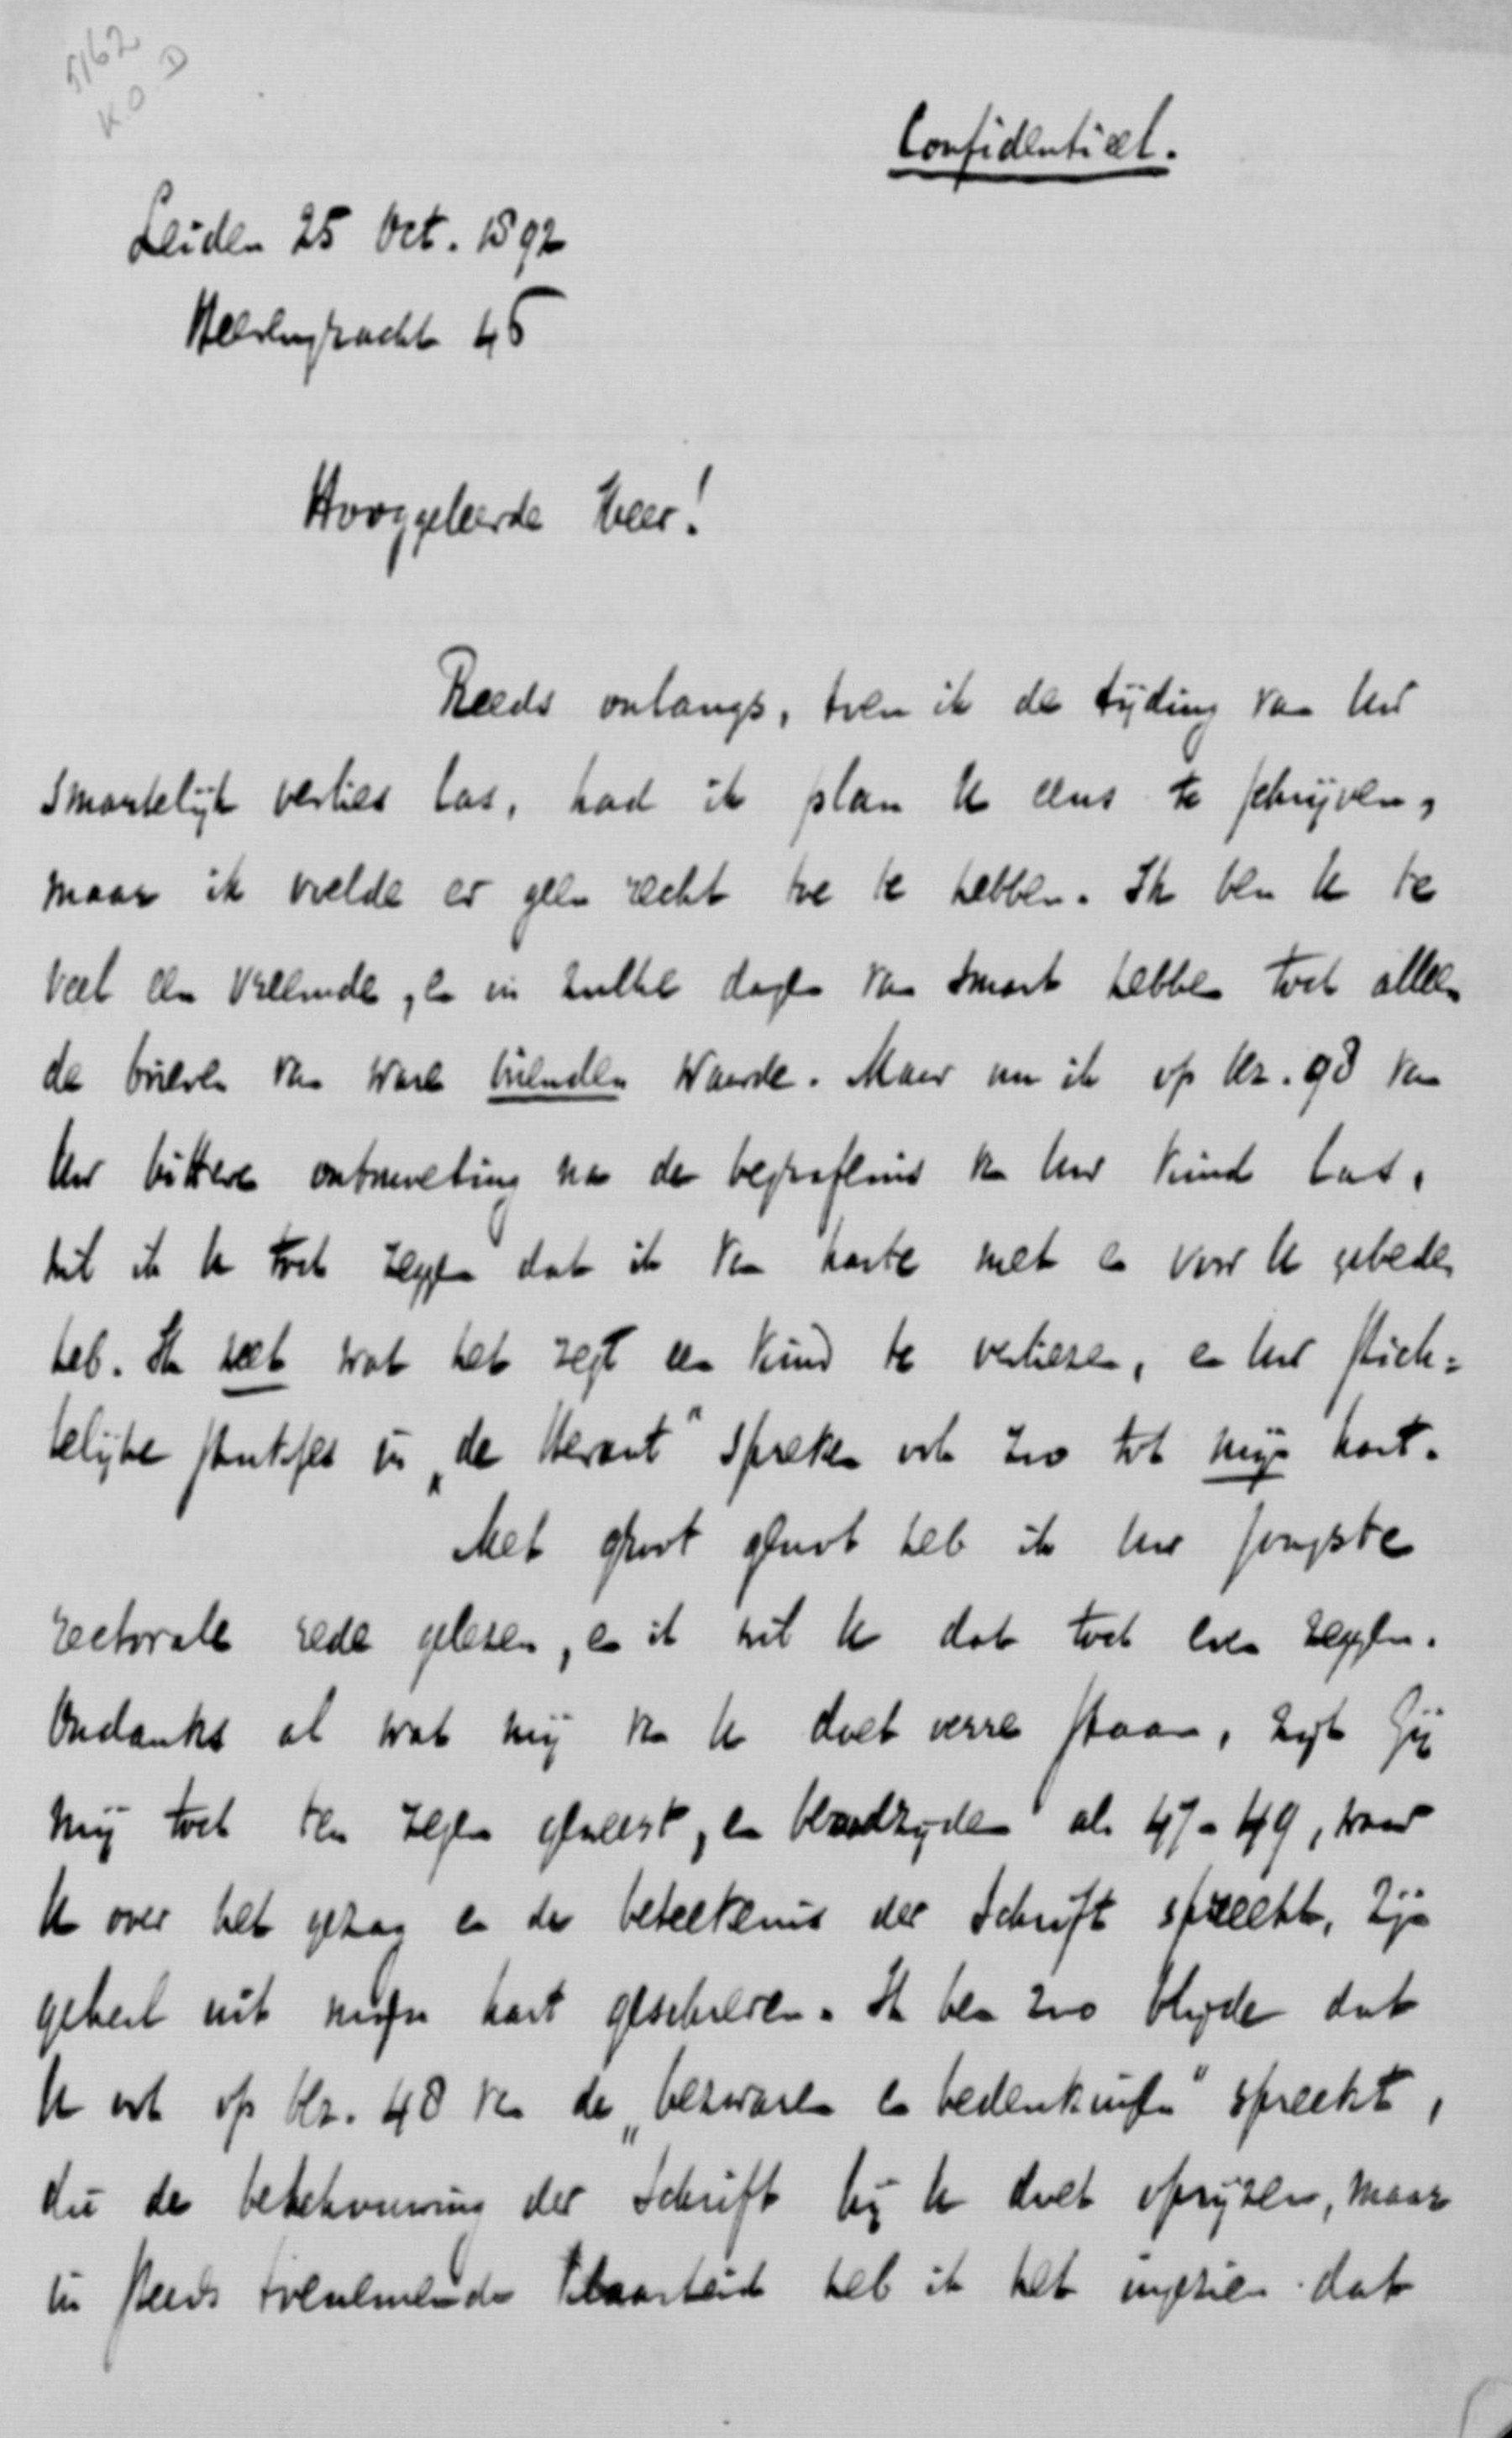 5162
K.O.D
Confidentieel.
Leiden 25 Oct. 1892
Heerengracht 45
Hooggeleerde Heer!
Reeds onlangs, toen ik de tijding van Uw
smartelijk verlies las, had ik plan U eens te schrijven,
maar ik voelde er geen recht toe te hebben. Ik ben U te
veel een vreemde, en in zulke dagen van smart hebben toch alleen
de brieven van ware vrienden waarde. Maar nu ik op blz. 98 van
Uw bittere ontmoeting na de begrafenis van Uw kind las,
wil ik U toch zeggen dat ik van harte met en voor U gebeden
heb. Ik weet wat het zegt een kind te verliezen, en Uw stich-
telijke stukjes in „de Heraut" spreken ook zoo tot mijn hart.
Met groot genot heb ik Uw jongste
rectorale rede gelezen, en ik wil U dat toch even zeggen.
Ondanks al wat mij van U doet verre staan, zijt Gij
mij toch ten zegen geweest, en bladzijden als 47-49, waar
U over het gezag en de beteekenis der Schrift spreekt, zijn
geheel uit mijn hart geschreven. Ik ben zoo blijde dat
U ook op blz. 48 van de „bezwaren en bedenkingen" spreekt,
die de beschouwing der Schrift bij U doet oprijzen, maar
in steeds toenemende klaarheid heb ik het ingezien dat